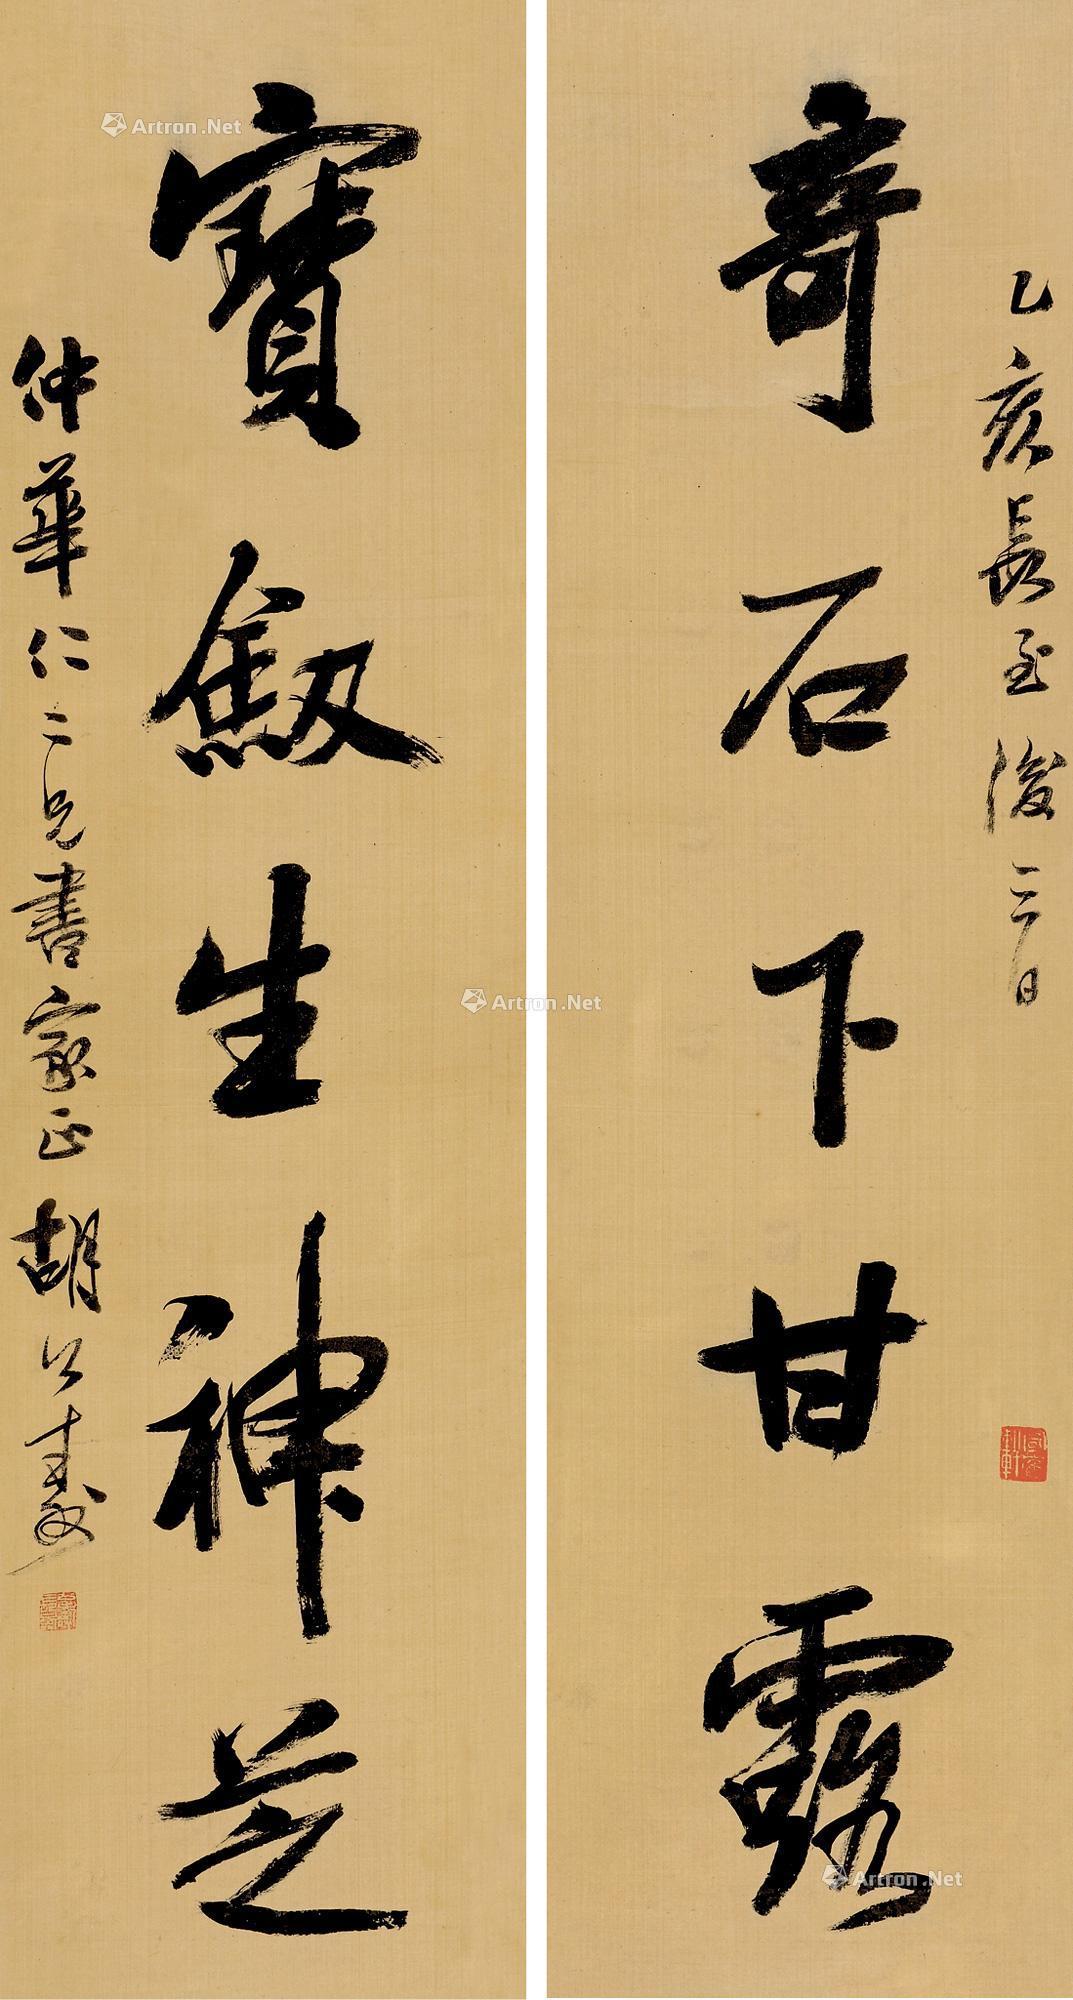 乙亥長至後三日
奇石下甘露
寶劔生神芝
仲華仁二兄書家正 胡公壽
Artron.Net
Artron.Net
Artron.Net